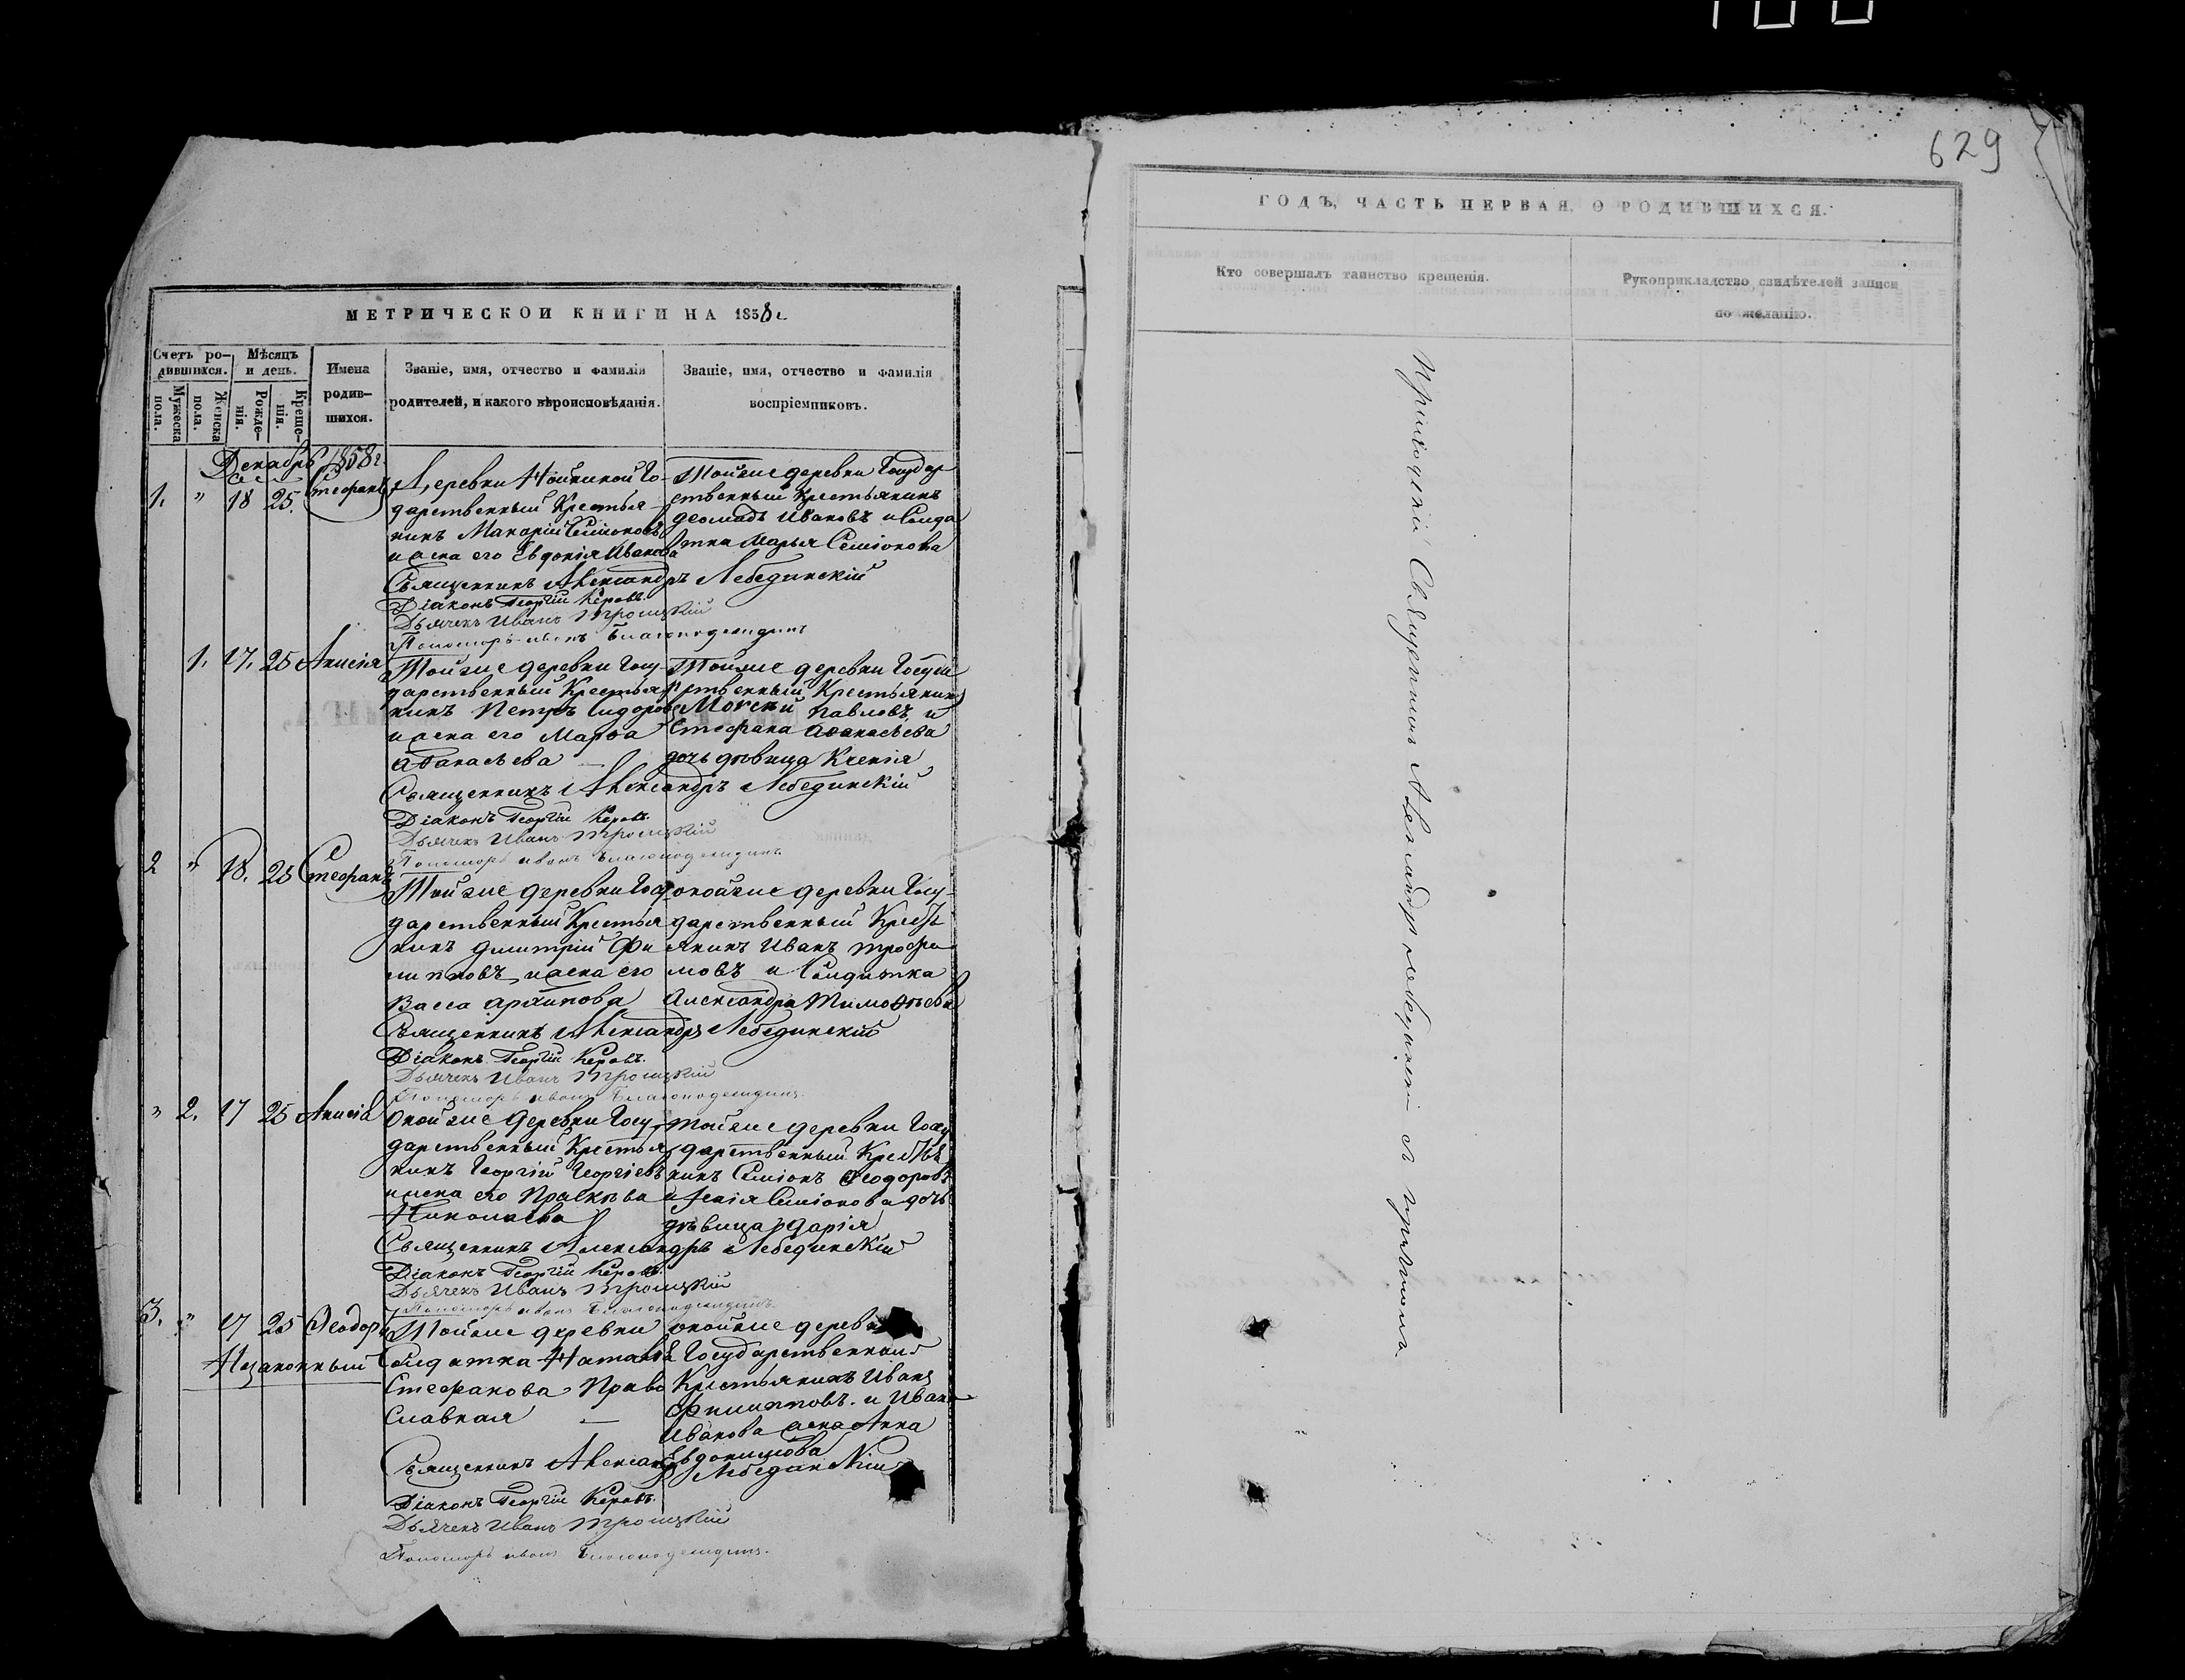 629
МЕТРИЧЕСКОЙ КНИГИ НА 1858 г.
Счетъ ро-
дившихся.
Мужеска
пола.
Женска
пола.
Мѣсяцъ
и день.
Рожде-
нія.
Креще-
нія.
Имена
родив-
шихся.
Званіе, имя, отчество и фамилія
родителей, и какого вѣроисповѣданія.
Званіе, имя, отчество и фамилія
воспріемниковъ.
Декабрь 1858 г.
1. " 18 25. Стефанъ
Деревни
дарственный Крестья
нинъ Макарій Семіоновъ
и жена его Евдокія Иванова
Тойже деревни Государ
ственный Крестьянинъ
Ивановъ и Солда
тка Марья Семіонова
Священникъ Александръ Лебединскій
Діаконъ Георгій Керовъ.
Дьячекъ Иванъ Троицкій
Пономарь Иванъ
1. 17. 25 Анисія
Тойже деревни Госу
дарственный Крестья
нинъ Петръ Сидоровъ
и жена его Марѳа
Аѳанасьева
Тойже деревни Госуда
рственный Крестьянинъ
Павловъ и
Стефана Аѳанасьева
дочь дѣвица Ксенія
Священникъ Александръ Лебединскій
Діаконъ Георгій Керовъ.
Дьячекъ Иванъ Троицкій
Пономарь Иванъ
2 " 18. 25 Стефанъ
Тойже деревни Госу
дарственный Крестья
нинъ Дмитрій Фи
липповъ и жена его
Васса Архипова
Онойже деревни Госу-
дарственный Кресть
янинъ Иванъ Трофи
мовъ и Солдатка
Александра Тимоѳѣева
Священникъ Александръ Лебединскій
Діаконъ Георгій Керовъ.
Дьячекъ Иванъ Троицкій
Пономарь Иванъ
" 2. 17 25 Анисія
Онойже деревни Госу-
дарственный Крестья
нинъ Георгій Георгіевъ
и жена его Прасковья
Николаева
Тойже деревни Госу
дарственный Крестья
нинъ Семіонъ Ѳеодоровъ
и Семіонова дочь
дѣвица Дарія
Священникъ Александръ Лебединскій
Діаконъ Георгій Керовъ.
Дьячекъ Иванъ Троицкій
Пономарь Иванъ
3. " 17 25 Ѳеодоръ
Незаконный
Тойже деревни
Солдатка Наталья
Стефанова Право
славная
Онойже деревни
Государственный
Крестьянинъ Иванъ
Филипповъ. и Ивана
Иванова жена Анна
Евдокимова
Священникъ Александръ Лебединскій
Діаконъ Георгій Керовъ.
Дьячекъ Иванъ Троицкій
Пономарь Иванъ
ГОДЪ, ЧАСТЬ ПЕРВАЯ, О РОДИВШИХСЯ.
Кто совершалъ таинство крещенія.
Рукоприкладство свидѣтелей записи
по желанію.
Приходскій Священникъ Александръ Лебединскій съ причтомъ